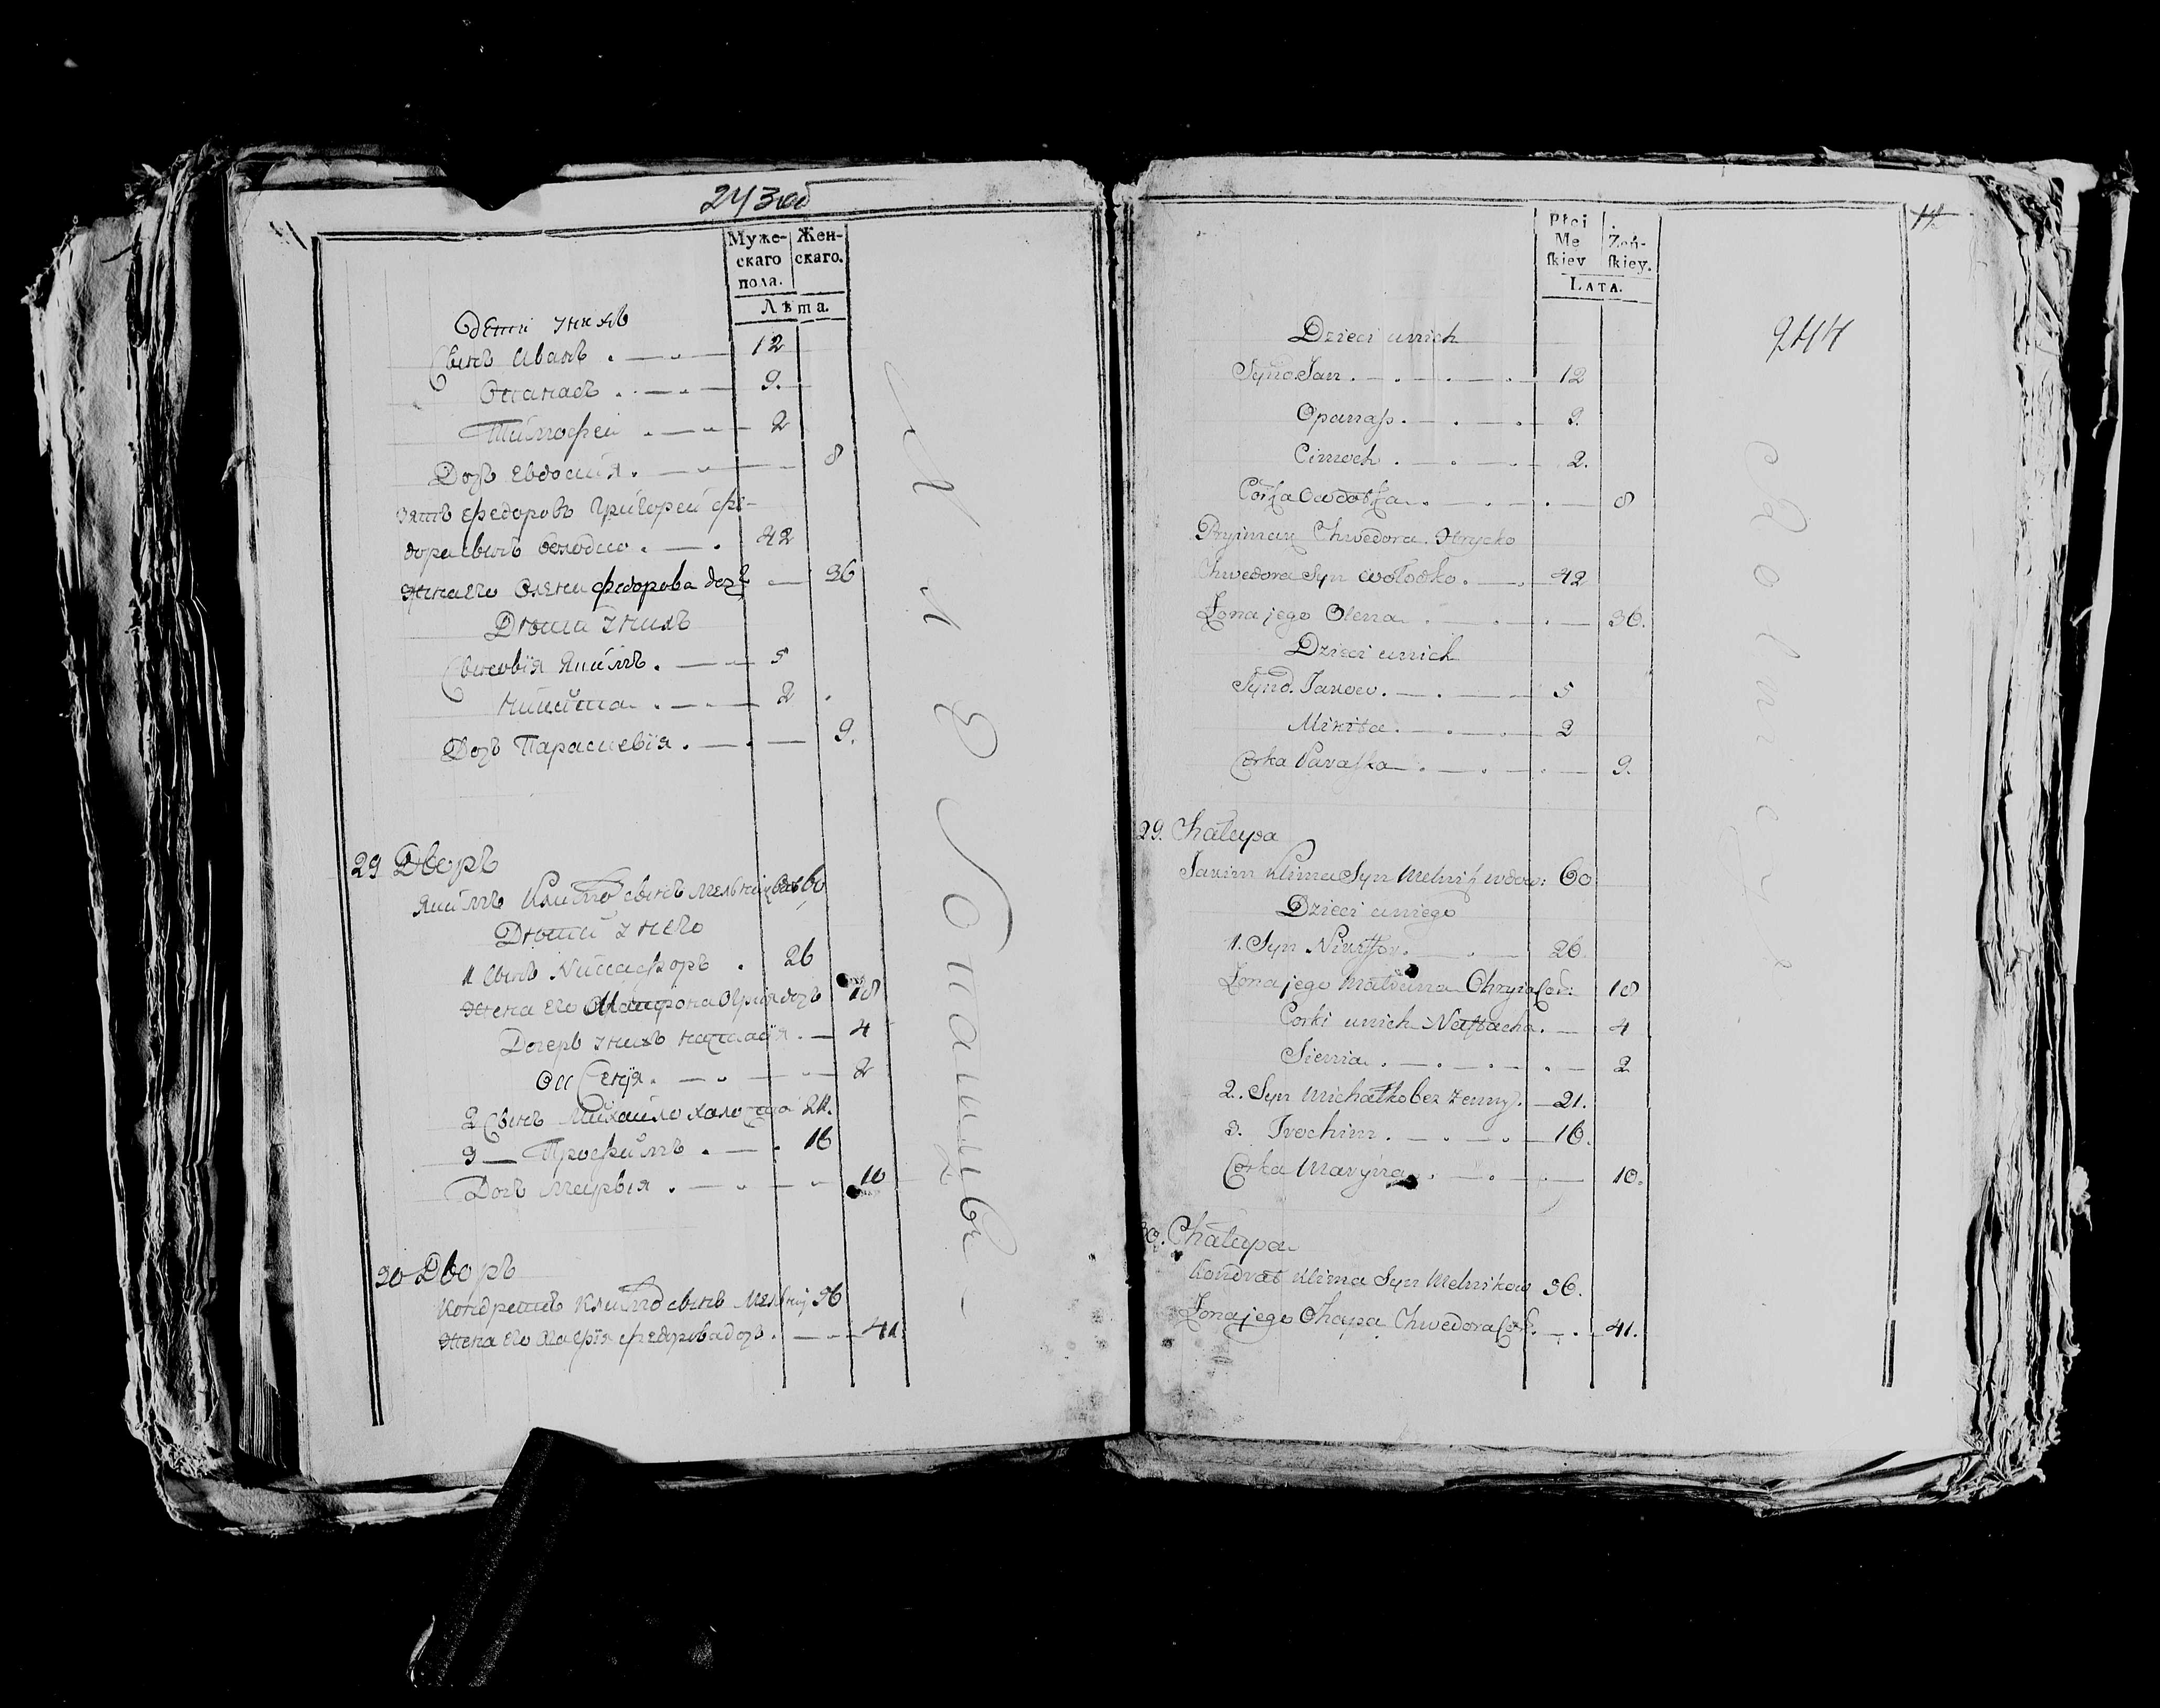 243об
Муже-
скаго
пола.
Жен-
скаго.
Лѣта.
Дети у нихъ
Сынъ Иванъ 12
Опанасъ 9.
Тимофеи 2
Дочь Евдокия 8
зять Федоровъ Григорей Фе-
дора сынъ Володко 42
жена его Олена Федорова дочь 36
Дѣти у нихъ
Сыновія Якимъ 5
Никита 2
Дочь Параскевія 9.
29 Дворъ
Якимъ Клима сынъ Мельникъ вдов 60
Дѣти у него
1 Сынъ Никифоръ 26
жена его Матрона дочь 18
Дочерь у нихъ Наталія 4
Ксенія 2
2 Сынъ Михайло холостъ 21.
3 — Трофимъ 16
Дочь Марья 10
30 Дворъ
Кондратъ Клима сынъ Мельник 36
жена его Агафія Федорова дочь 41.
Płci
Mę
ſkiey
Żeń-
ſkiey.
LATA.
14
244
Dzieci u nich
Syno. Jan 12
Opanaſs 9.
Cimoch 2.
Corka Owdotka 8
Pryimak Chwedora Hrycko
Chwedora Syn Wołodko 42
Żona jego Olena 36.
Dzieci u nich
Syno. Jakow 5
Mikita 2
Corka Paraſka 9.
29. Chałupa
Jakim Klima Syn Melnik wdow: 60
Dzieci u niego
1. Syn Nikiffor 26.
Żona jego Matruna Cor: 18
Corki u nich Nastacha 4
Sienia 2
2. Syn Michałko bez żenny 21.
3. Trochim 16.
Corka Maryna 10.
30. Chałupa
Kondrat Klima Syn Melnikow 36.
Żona jego Ohapa Chwedora Cor. 41.